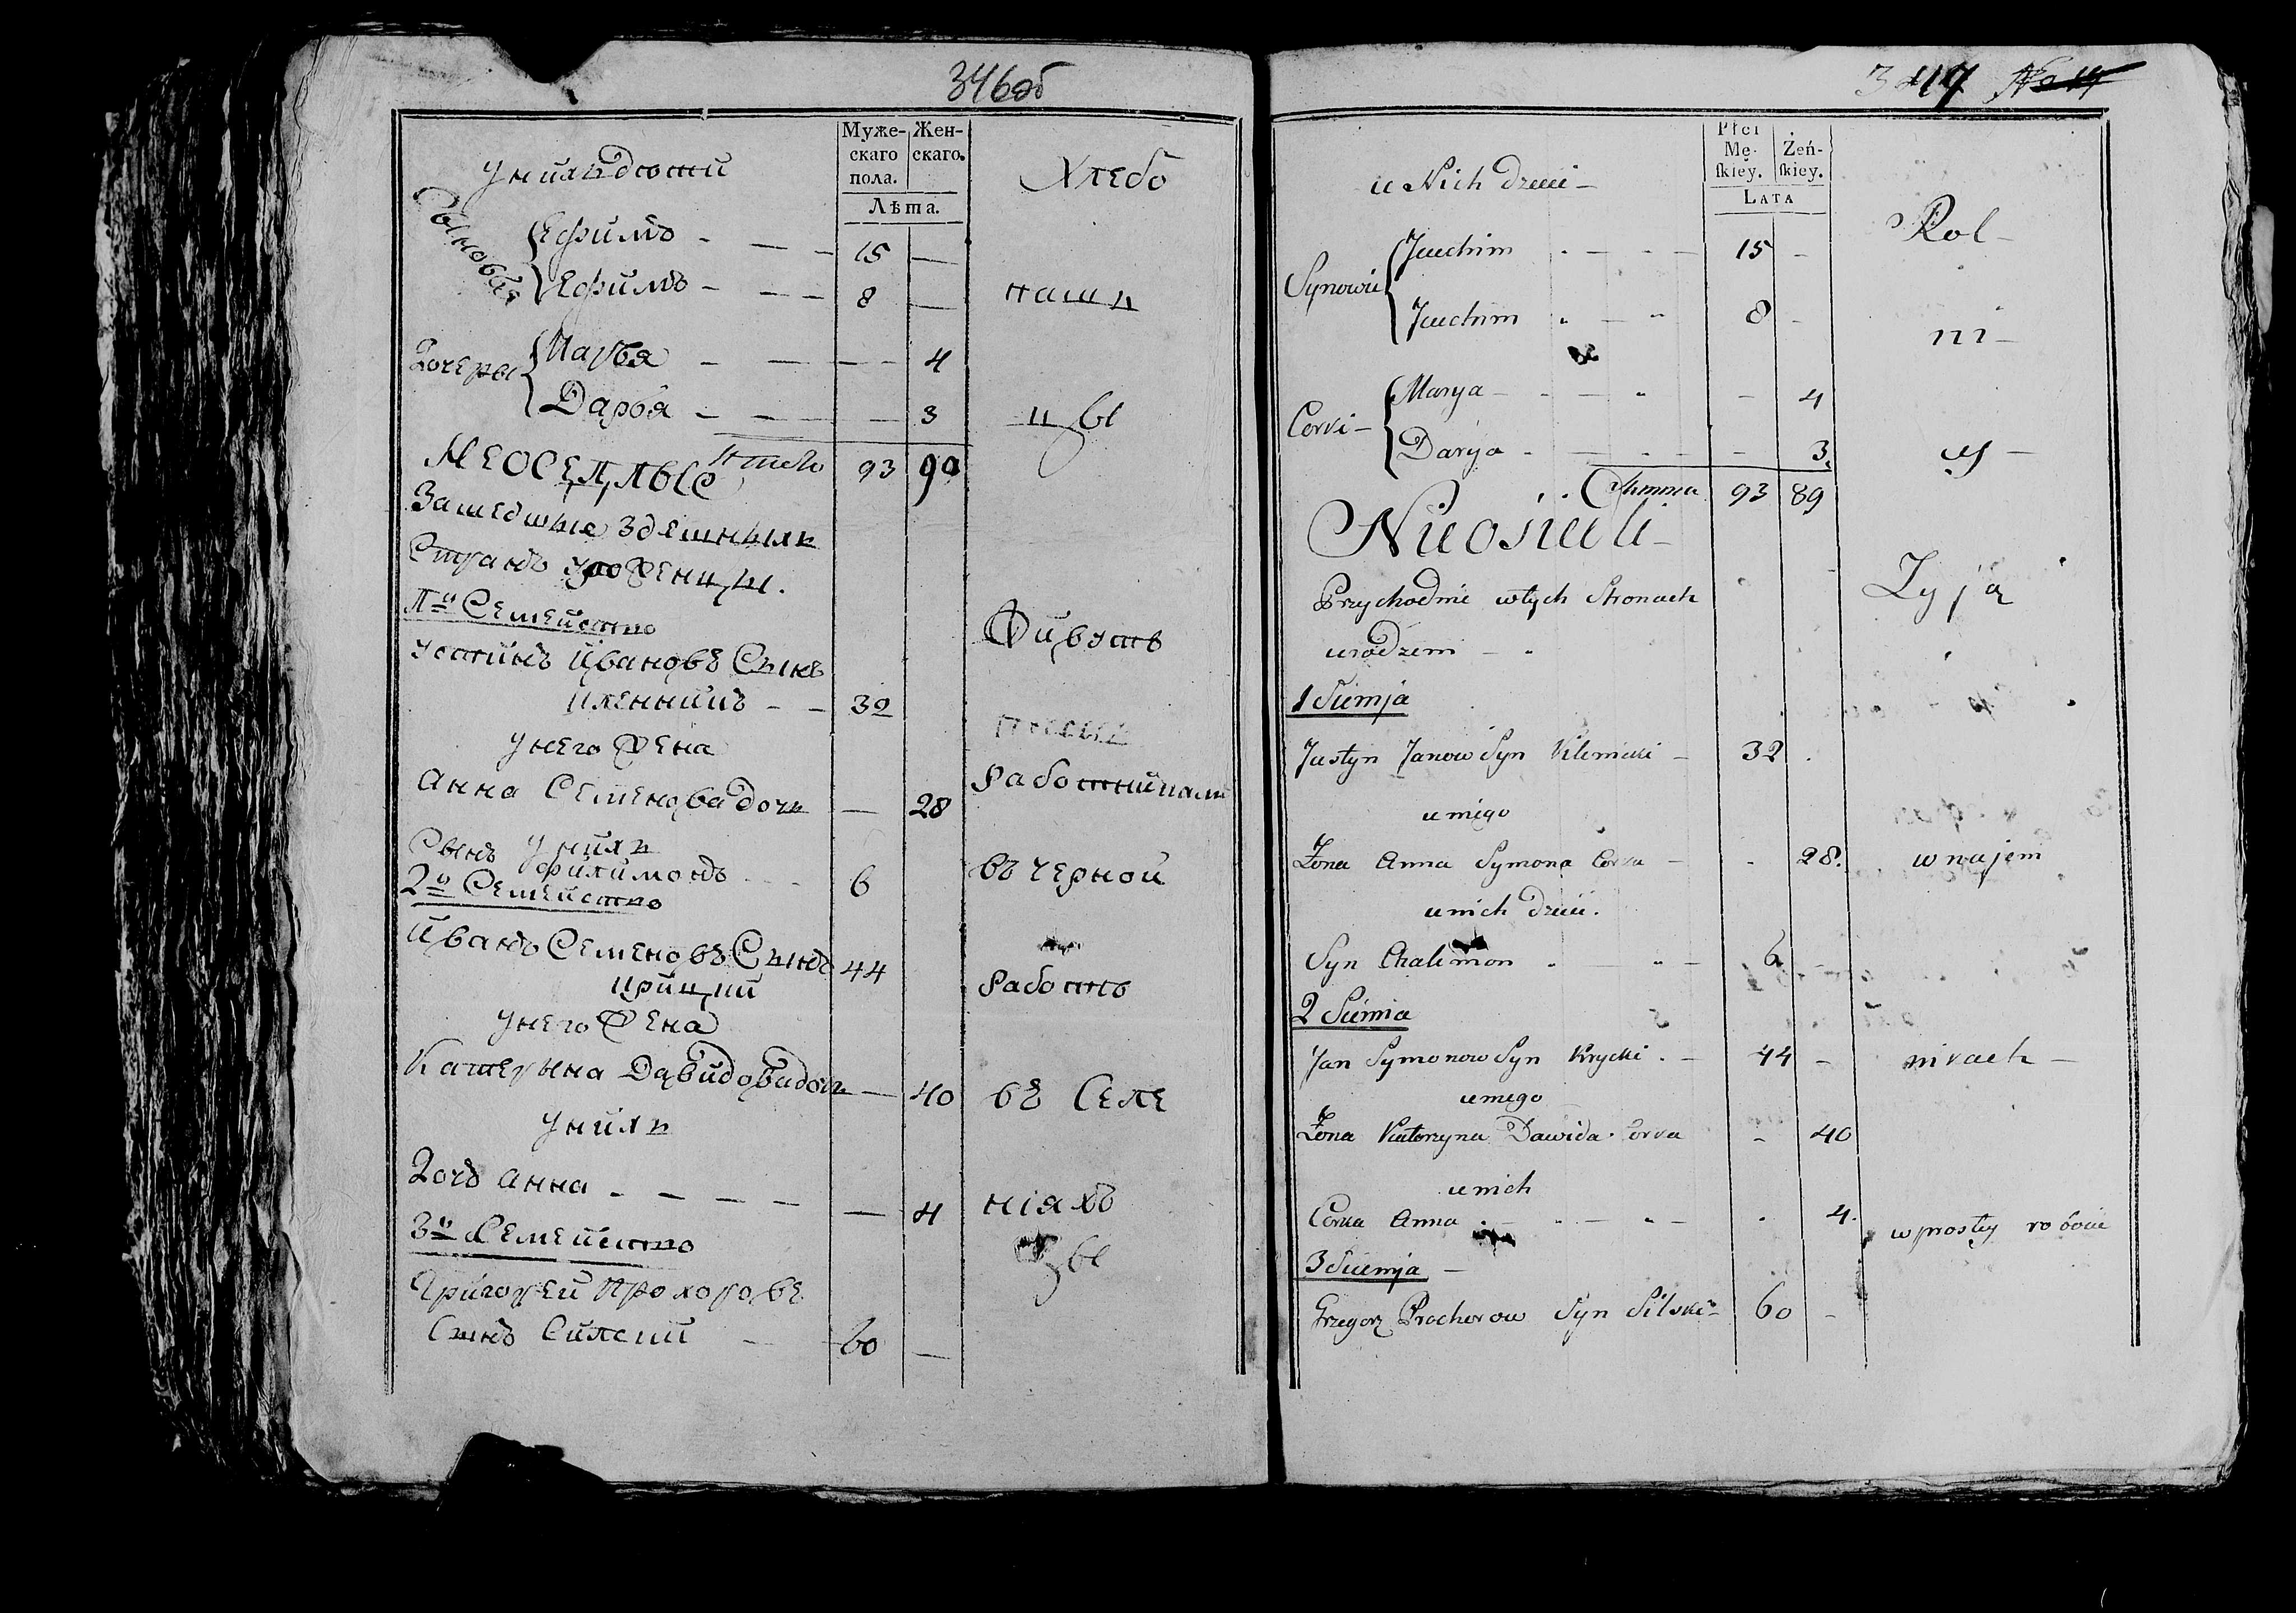 346об
Муже-
скаго
пола.
Жен-
скаго.
Лѣта.
унихъ дѣти
Хлебо
Сыновья
Ефимъ - — — 15 —
Ефимъ - — — 8 —
паш ъ
Дочеры
Марья - — — 4
Дарья - — — 3
цы
Итого 93 90
НЕОСЕДЛЫЕ
Зашедшые здешныхъ
Странъ уроженцы.
1й Семейство
Живутъ
Устинъ Ивановъ Сынъ
32
унего жена
Анна Семенова дочъ — 28
Работниками
Сынъ унихъ
Филимонъ 6
въ черной
2й Семейство
Иванъ Семеновъ Сынъ 44
Крицкий
работъ
унего жена
Катерына Давидова дочъ — 40
въ Селе
унихъ
Дочъ Анна - — — — 4
ніяхъ
3й Семейство
Григорей Прохоровъ
Сынъ Силский 60 —
347 No
Płci
Mę-
skiey.
Żeń-
skiey.
LATA
u Nich dzieci -
Rol -
Synowie
Juchim - 15 -
Juchim - 8 -
ni -
Corki -
Marya - - 4
Darya - - 3.
cy -
Summa 93 89
Nieosiedli -
Przychodnie w tych Stronach
Zyją
urodzeni -
1 Siemja
Justyn Janow Syn Klimicki - 32
u niego
Żona Anna Symona Corka - - 28.
w najem
u nich dzieci.
Syn Chalimon - 6 -
2 Siemia
Jan Symonow Syn Krycki . - 44 -
nikach -
u niego
Żona Katerzyna Dawida Corka - 40
u nich
Corka Anna - - 4.
w prostey robocie
3 Siemja -
Grzegorz Prochorow Syn Silski - 60 -